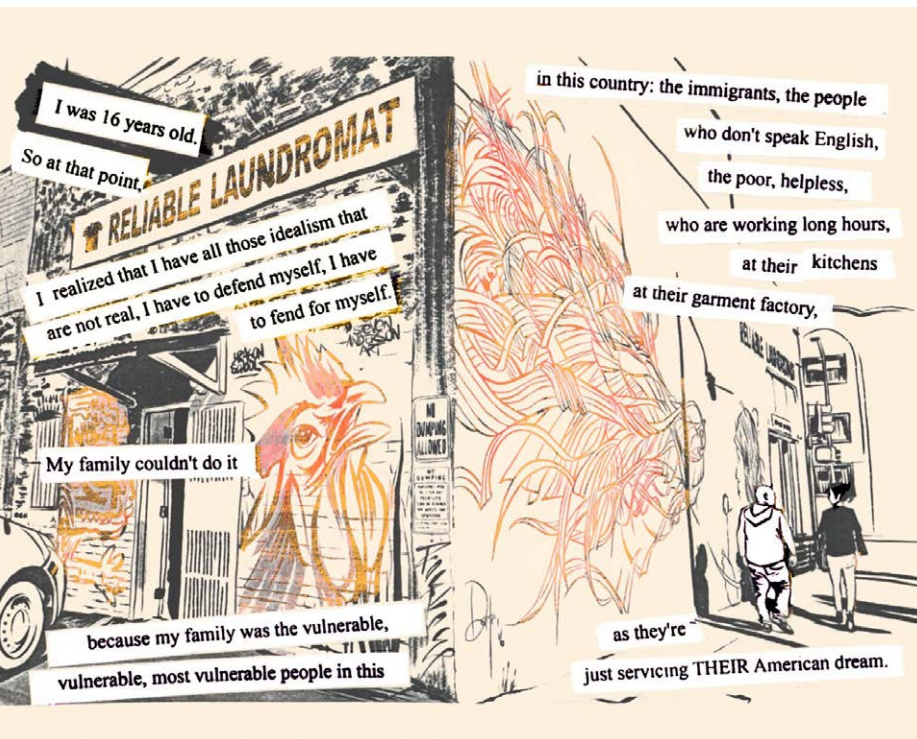 I was 16 years old.
So at that point,
RELIABLE LAUNDROMAT
I realized that I have all those idealism that
are not real, I have to defend myself, I have
to fend for myself.
NO
DUMPING
ALLOWED
NO
DUMPING
My family couldn't do it
because my family was the vulnerable,
vulnerable, most vulnerable people in this
in this country: the immigrants, the people
who don't speak English,
the poor, helpless,
who are working long hours,
at their kitchens
at their garment factory,
as they're
just servicing THEIR American dream.